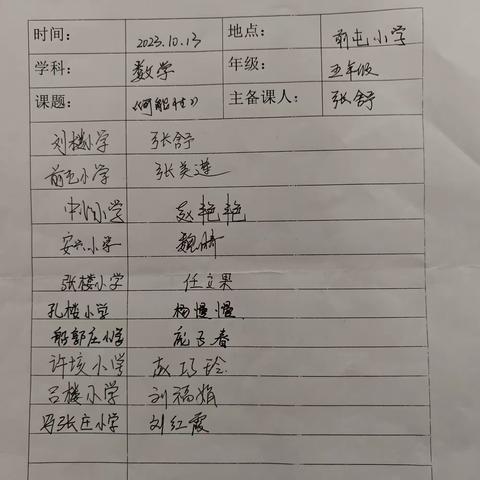 时间: 2023.10.13 地点: 前屯小学
学科: 数学 年级: 五年级
课题: 《可能性》 主备课人: 张舒
刘楼小学 张舒
前屯小学 张美莲
中心小学 赵艳艳
安兴小学 魏晴
张楼小学 任立果
孔楼小学 杨慢慢
郭庄小学 春
许垓小学 赵巧玲
吕楼小学 刘福娟
张庄小学 刘红霞